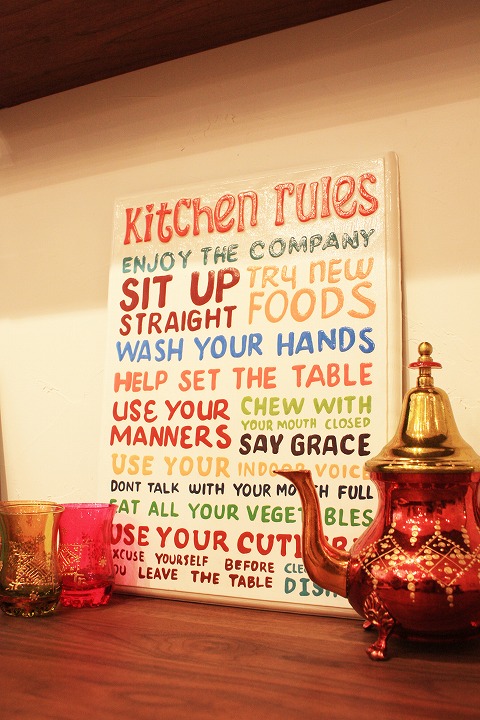 Kitchen rules
ENJOY THE COMPANY
SIT UP
STRAIGHT
TRY new
FOODS
WASH YOUR HANDS
HELP SET THE TABLE
USE YOUR
MANNERS
CHEW WITH
YOUR MOUTH CLOSED
SAY GRACE
USE YOUR INDOOR VOICE
DONT TALK WITH YOUR MOUTH FULL
EAT ALL YOUR VEGETABLES
USE YOUR
EXCUSE YOURSELF BEFORE
YOU LEAVE THE TABLE